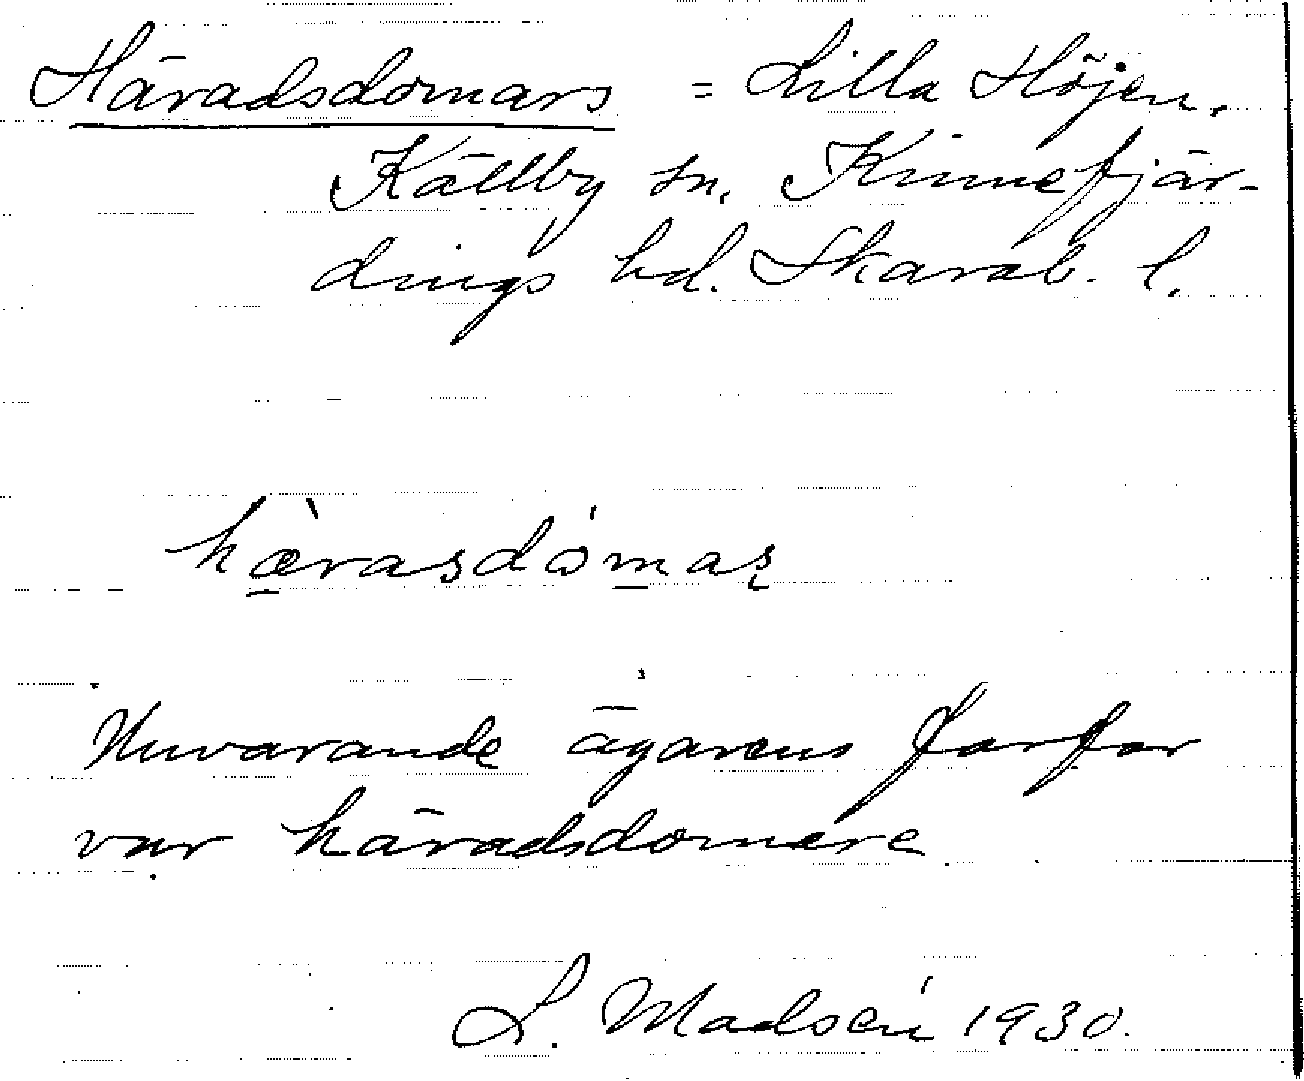 Häradsdomars = Lilla Höjen,
Källby sn, Kinnefjär-
dings hd. Skarab. l.
hæ̀rasdómaʂ
Nuvarande ägarens farfar
var häradsdomare
L. Madsén 1930.